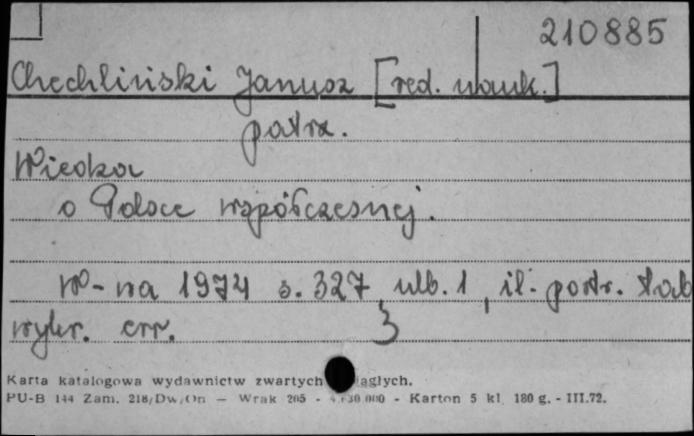 210885
Chechliński Janusz [red. nauk.]
patrz.
Wiedza
o Polsce współczesnej.
W-wa 1974 s. 327, ulb. 1, il. portr. tab
wykr. err. 3
Karta katalogowa wydawnictw zwartych i ciągłych.
PU-B 144 Zam. 218/Dw/On — Wrak 205 - 000 - Karton 5 kl. 180 g. - III.72.